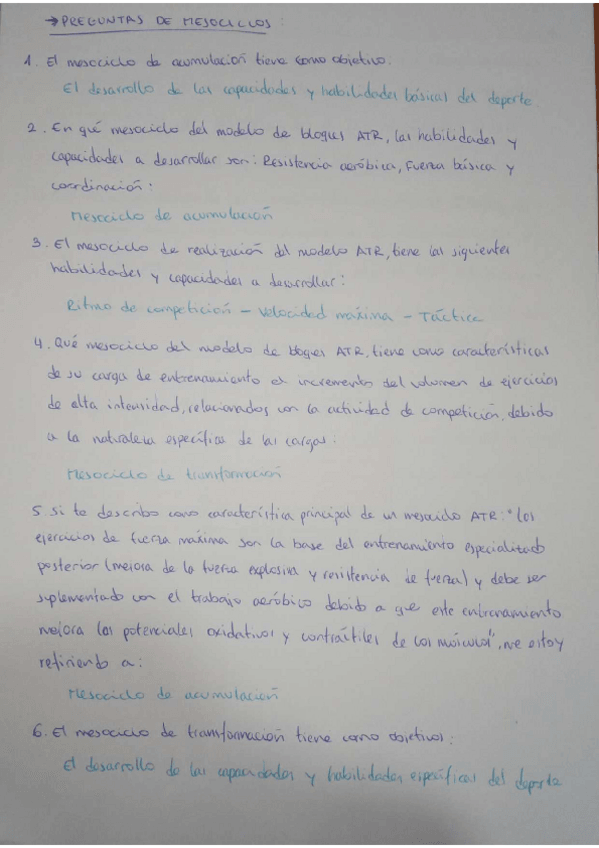 → PREGUNTAS DE MESOCICLOS:
1. El mesociclo de acumulación tiene como objetivo.
El desarrollo de las capacidades y habilidades básicas del deporte
2. En qué mesociclo del modelo de bloques ATR, las habilidades y
capacidades a desarrollar son: Resistencia aeróbica, Fuerza básica y
coordinación:
Mesociclo de acumulación
3. El mesociclo de realización del modelo ATR, tiene las siguientes
habilidades y capacidades a desarrollar:
Ritmo de competición - Velocidad máxima - Táctica
4. Qué mesociclo del modelo de bloques ATR, tiene como características
de su carga de entrenamiento el incremento del volumen de ejercicios
de alta intensidad, relacionados con la actividad de competición, debido
a la naturaleza específica de las cargas:
Mesociclo de transformación
5. Si te describo como característica principal de un mesociclo ATR: "Los
ejercicios de fuerza máxima son la base del entrenamiento especializado
posterior (mejora de la fuerza explosiva y resistencia de fuerza) y debe ser
suplementado con el trabajo aeróbico debido a que este entrenamiento
mejora los potenciales oxidativos y contráctiles de los músculos", me estoy
refiriendo a:
Mesociclo de acumulación
6. El mesociclo de transformación tiene como objetivos:
El desarrollo de las capacidades y habilidades específicas del deporte